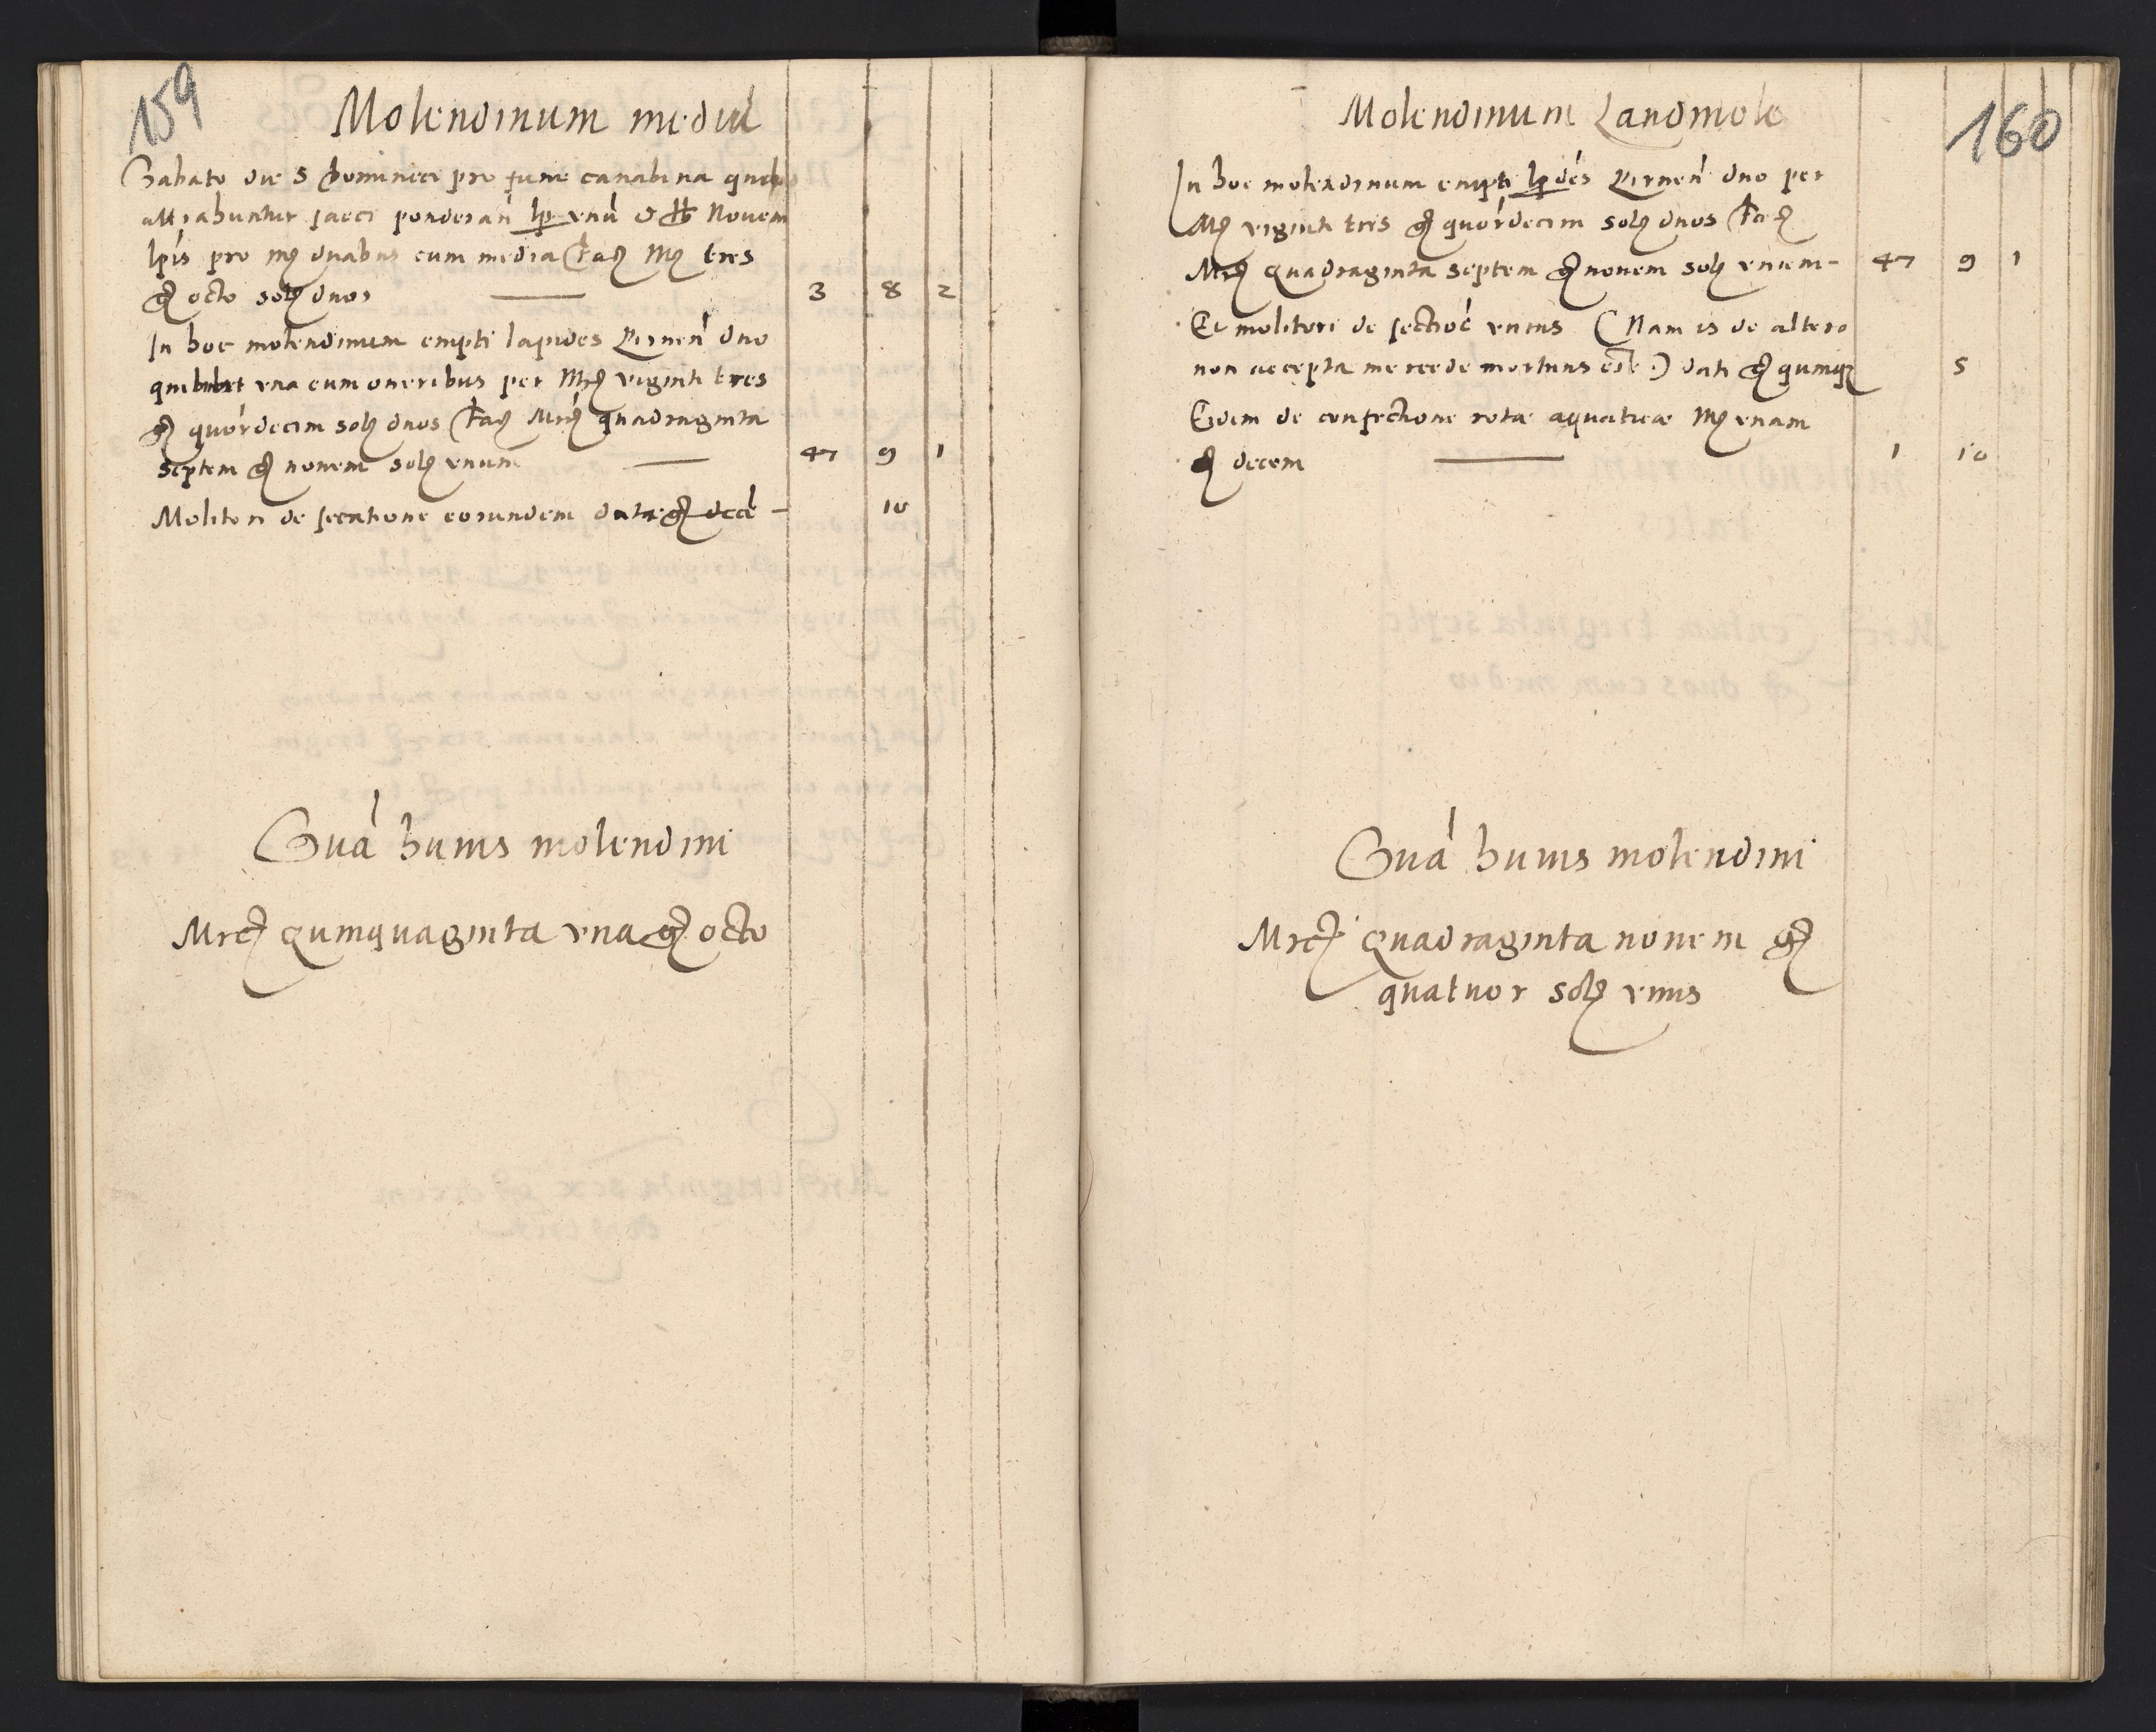 159
Molendinum mediu
Sabato die 5 Dominice pro fune canabina
attrahuntur sacci ponderan lp unu et lb Novem
lpis pro mg duabus cum media fac Mg tres
gr octo solg duos 3 8 2
In hoc molendinum empti lapides Pirnen duo
quilibet una cum oneribus per Mrg viginti tres
gr quordecim solg duos fac Mrg quadraginta
septem gr nonem solg unum 47 9 1
Molitori de secatione eorundem dati gr decē 10
Suā huius molendini
Mrcg quinquaginta una gr octo
160
Molendinum Landmole
In hoc molendinum empti lpides Pirnen duo per
Mg viginti tres gr quordecim solg duos fac
Mrcg quadraginta septem gr nonem solg unum 47 9 1
Et molitori de sectioē unius (Nam is de altero
non accepta mercede mortuus est) dati gr quinqz 5
Eidem de confectione rotæ aquaticæ Mg unam
gr decem 1 10
Suā huius molendini
Mrcg quadraginta nonem gr
quatuor solg unus